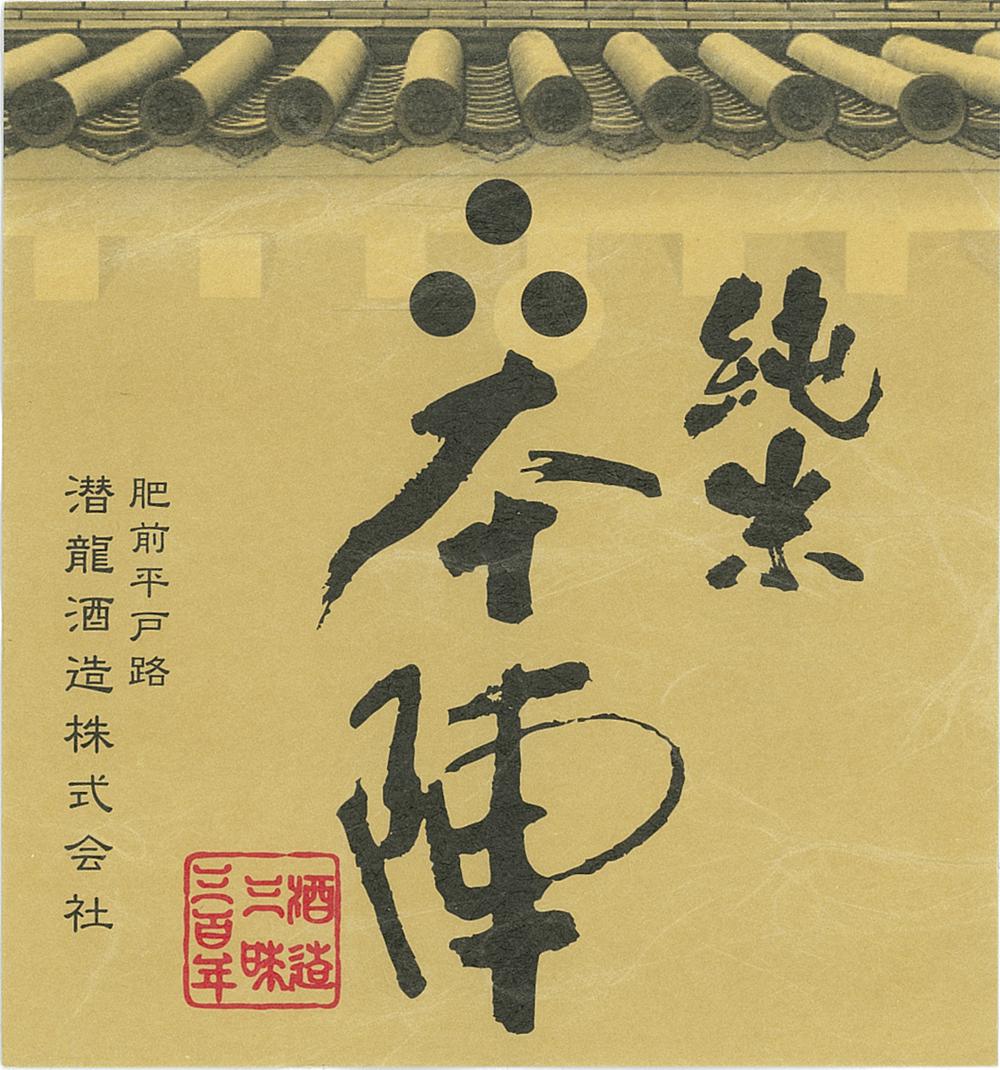 純米
本陣
肥前平戸路
潜龍酒造株式会社
酒造
三昧
三百年